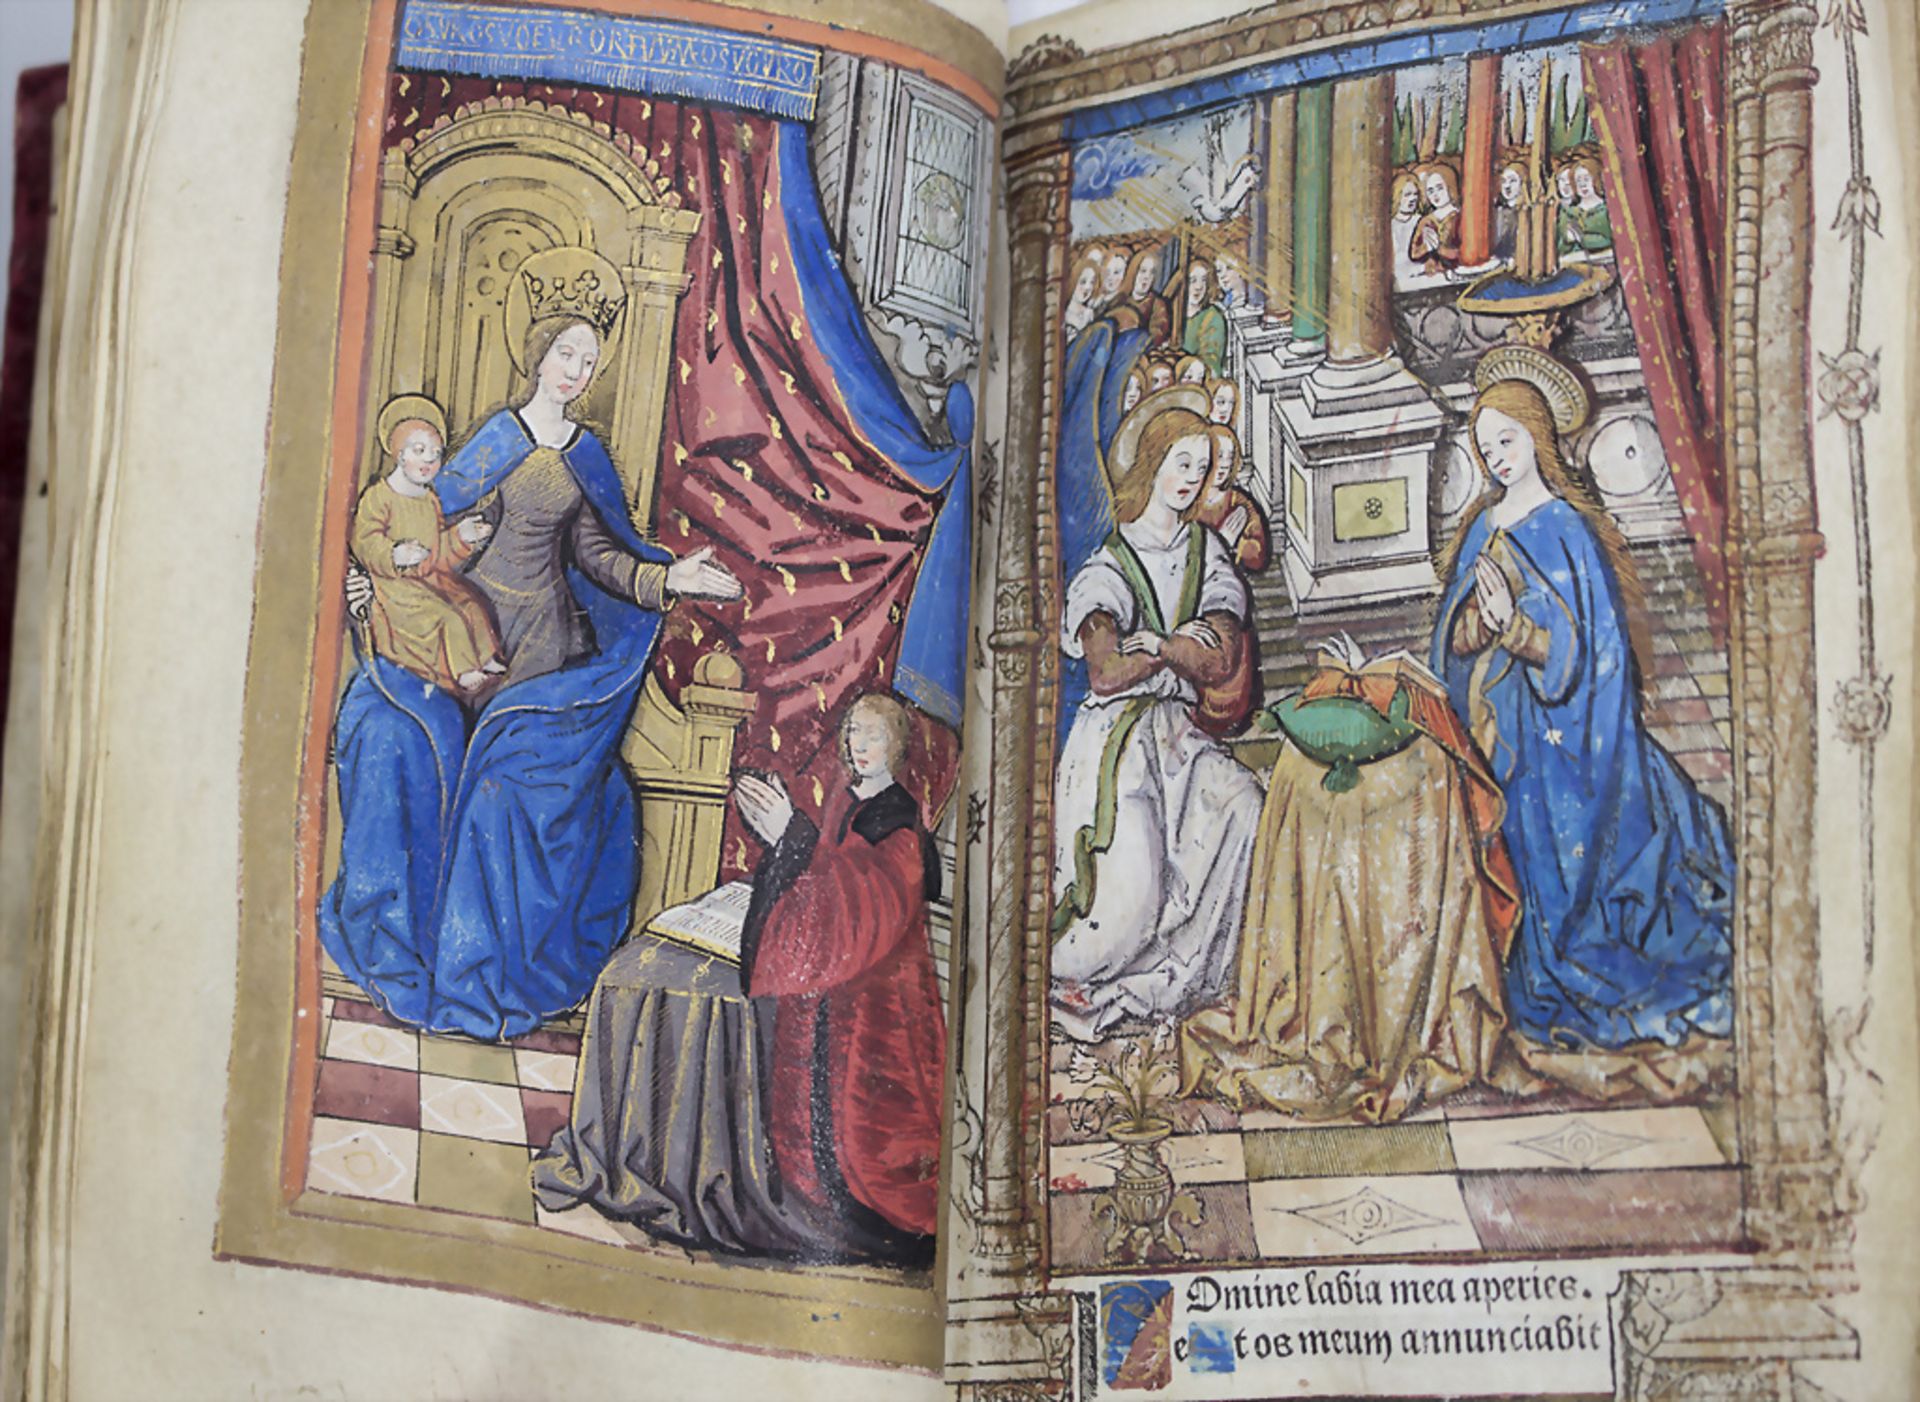 Dmine labia mea aperies.
et os meum annunciabit